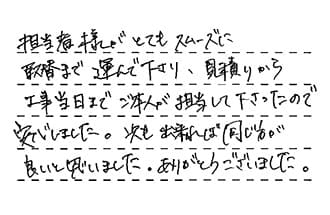 担当者様がとてもスムーズに
取替まで運んで下さり、見積りから
工事当日までご本人が担当して下さったので
安心しました。次も出来れば同じ方が
良いと思いました。ありがとうございました。